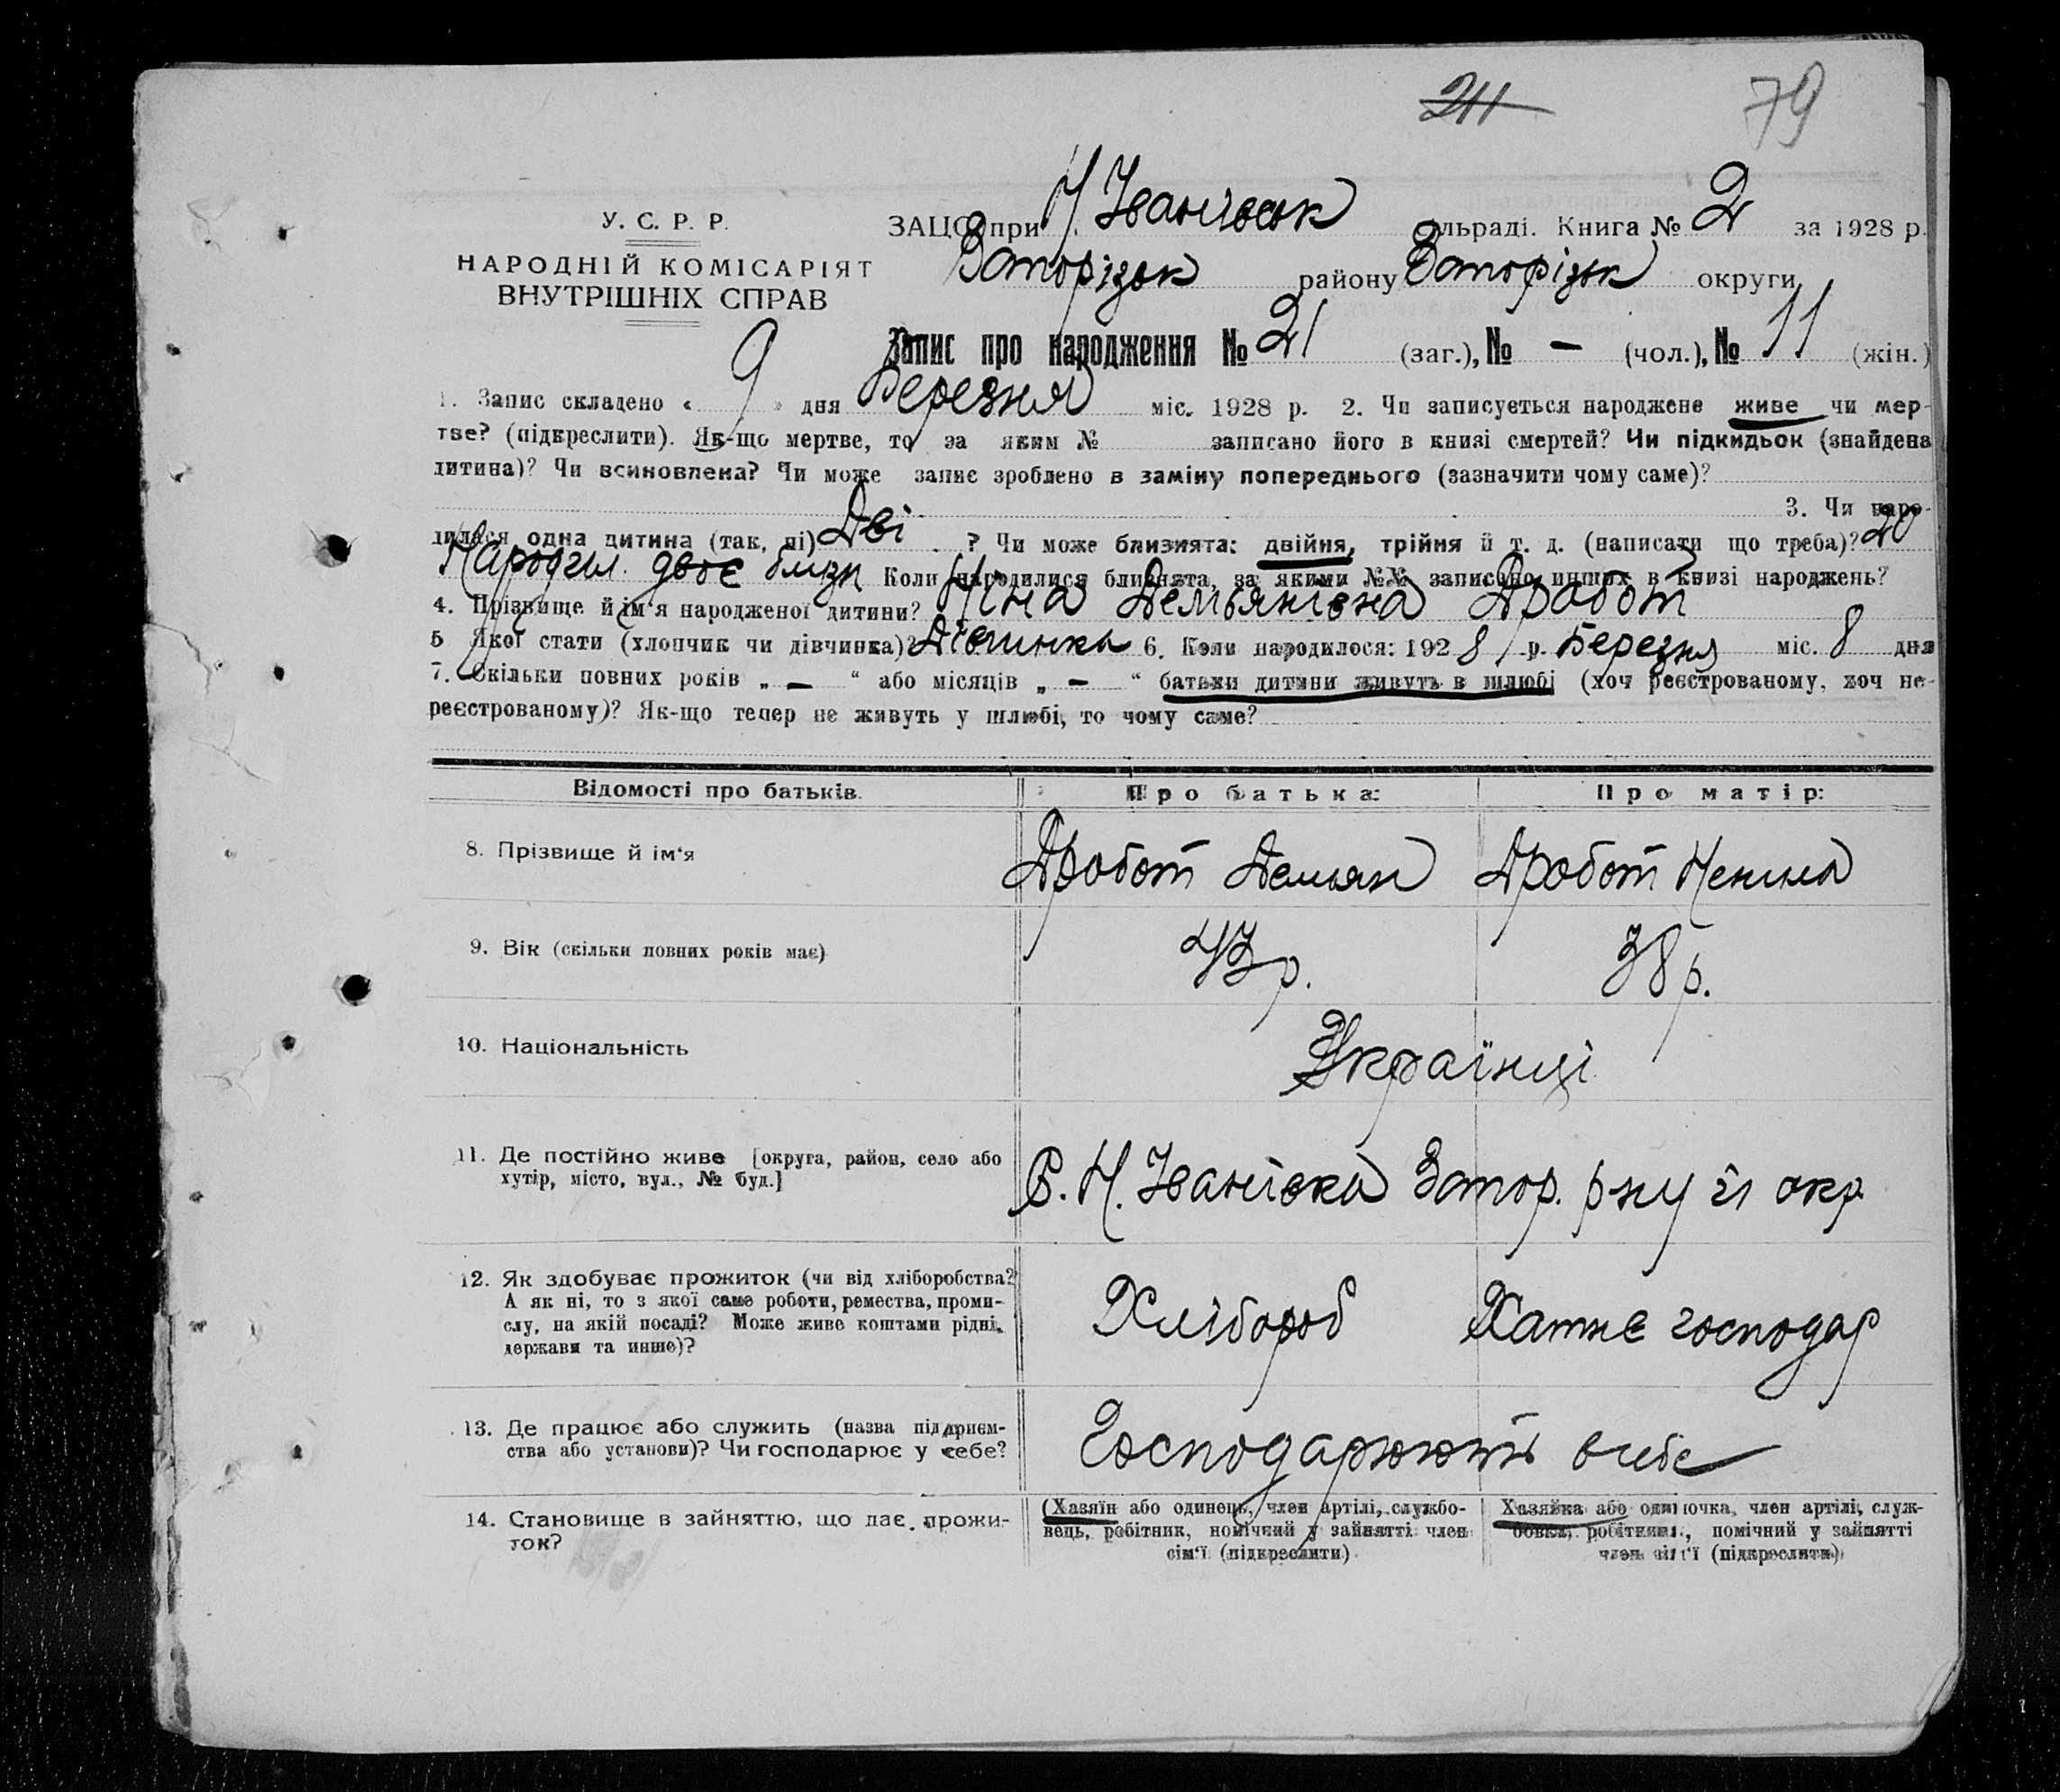 211 79
У. С. Р. Р.
НАРОДНІЙ КОМІСАРІЯТ
ВНУТРІШНІХ СПРАВ
ЗАЦС при Н Іванівськ сільраді. Книга № 2 за 1928 р.
Запорізьк району Запорізьк округи
Запис про народження № 21 (заг.), № — (чол.), № 11 (жін.)
1. Запис складено « 9 » дня Березня міс. 1928 р. 2. Чи записується народжене живе чи мер-
тве? (підкреслити). Як-що мертве, то за яким № записано його в книзі смертей? Чи підкидьок (знайдена
дитина)? Чи всиновлена? Чи може запис зроблено в заміну попереднього (зазначити чому саме)?
3. Чи наро-
дилася одна дитина (так, ні) Дві ? Чи може близнята: двійня, трійня й т. д. (написати що треба)? 20
Народил. двоє близн Коли народилися близнята, за якими №№ записано инших в книзі народжень?
4. Прізвище й ім'я народженої дитини? Ніна Демьянівна Дробот
5 Якої стати (хлопчик чи дівчинка)? Дівчинка 6. Коли народилося: 192 8 р. Березня міс. 8 дня
7. Скільки повних років „ — “ або місяців „ — “ батьки дитини живуть в шлюбі (хоч реєстрованому, хоч не-
реєстрованому)? Як-що тепер не живуть у шлюбі, то чому саме?
Відомості про батьків. Про батька: Про матір:
8. Прізвище й ім'я Дробот Демьян Дробот
9. Вік (скільки повних років має) 43 р. 38 р.
10. Національність Українці
11. Де постійно живе [округа, район, село або
хутір, місто, вул., № буд.]
С. Н. Іванівка Запор. р-ну й окр
12. Як здобуває прожиток (чи від хліборобства?
А як ні, то з якої саме роботи, ремества, проми-
слу, на якій посаді? Може живе коштами рідні,
держави та инше)?
Хлібороб Хатнє господар
13. Де працює або служить (назва підприєм-
ства або установи)? Чи господарює у себе?
Господарюють в себе
14. Становище в зайняттю, що дає прожи-
ток?
(Хазяїн або одинець, член артілі, службо-
вець, робітник, помічний у зайнятті член
сім'ї (підкреслити)
Хазяйка або одиночка, член артілі, служ-
бовка, робітниця, помічний у зайнятті
член сім'ї (підкреслити)